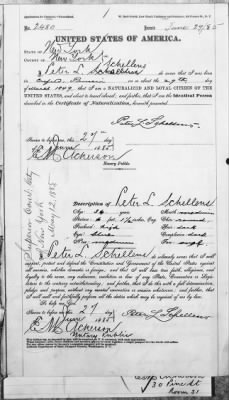 No. 2480 Issued June 27/85
UNITED STATES OF AMERICA.
STATE OF New York
COUNTY OF New York
I, Peter L. Schellens do swear that I was born
in on or about the day
of 1849, that I am a NATURALIZED AND LOYAL CITIZEN OF THE
UNITED STATES, and about to travel abroad, and further, that I am the Identical Person
described in the Certificate of Naturalization, herewith presented.
Peter L. Schellens
Sworn to before me this 27th
day of June 1885
E. M. Acherson
Notary Public.
Superior Court, City
of New York
May 12, 1885
Description of Peter L. Schellens
Age: 36 years Mouth: medium
Stature: 5 feet inches, Eng. Chin: round
Forehead: high Hair: dark
Eyes: blue Complexion: dark
Nose: medium Face:
I, Peter L. Schellens do solemnly swear that I will
support, protect and defend the Constitution and Government of the United States against
all enemies, whether domestic or foreign, and that I will bear true faith, allegiance, and
loyalty to the same, any ordinance, resolution or law of any State, Convention or Legisla-
ture to the contrary notwithstanding; and further, that I do this with a full determination,
pledge and purpose, without any mental reservation or evasion whatsoever; and further, that
I will well and faithfully perform all the duties which may be required of me by law.
So help me God.
Peter L. Schellens
Sworn to before me this 27
day of June 1885
E. M. Acherson
Notary Public
E. M. Acherson
30 Pine St
Room 31